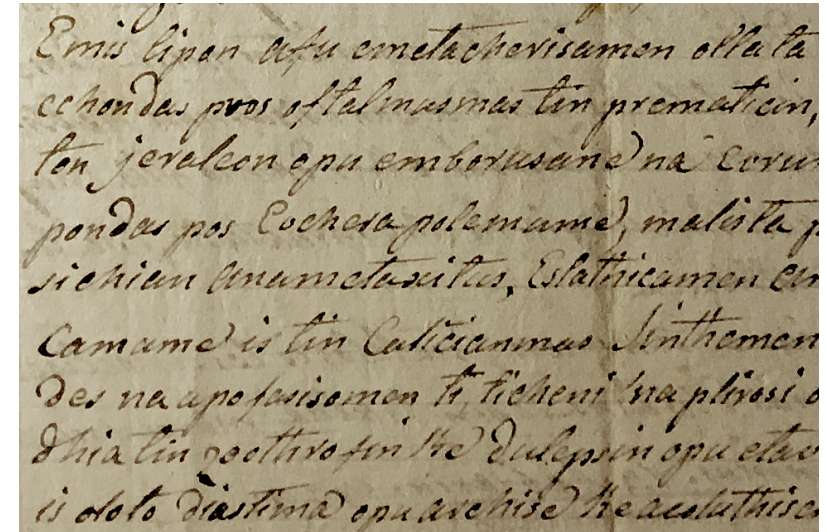 Emis lipon afu emetacherisamen olla ta
echondas pros oftalmusmas tin prematicin,
ton jeraleon opu emborusane na
pondas pos Eochera polemume, malista
sichian anametaxitus, Estathicamen
Camame is tin Calicianmas Sinthemen
des na apofasisomen ti, ticheni na plirosi o
dhia tin zoothrofin ke dulepsin opu
is oloto diastima opu archise ke acoluthise